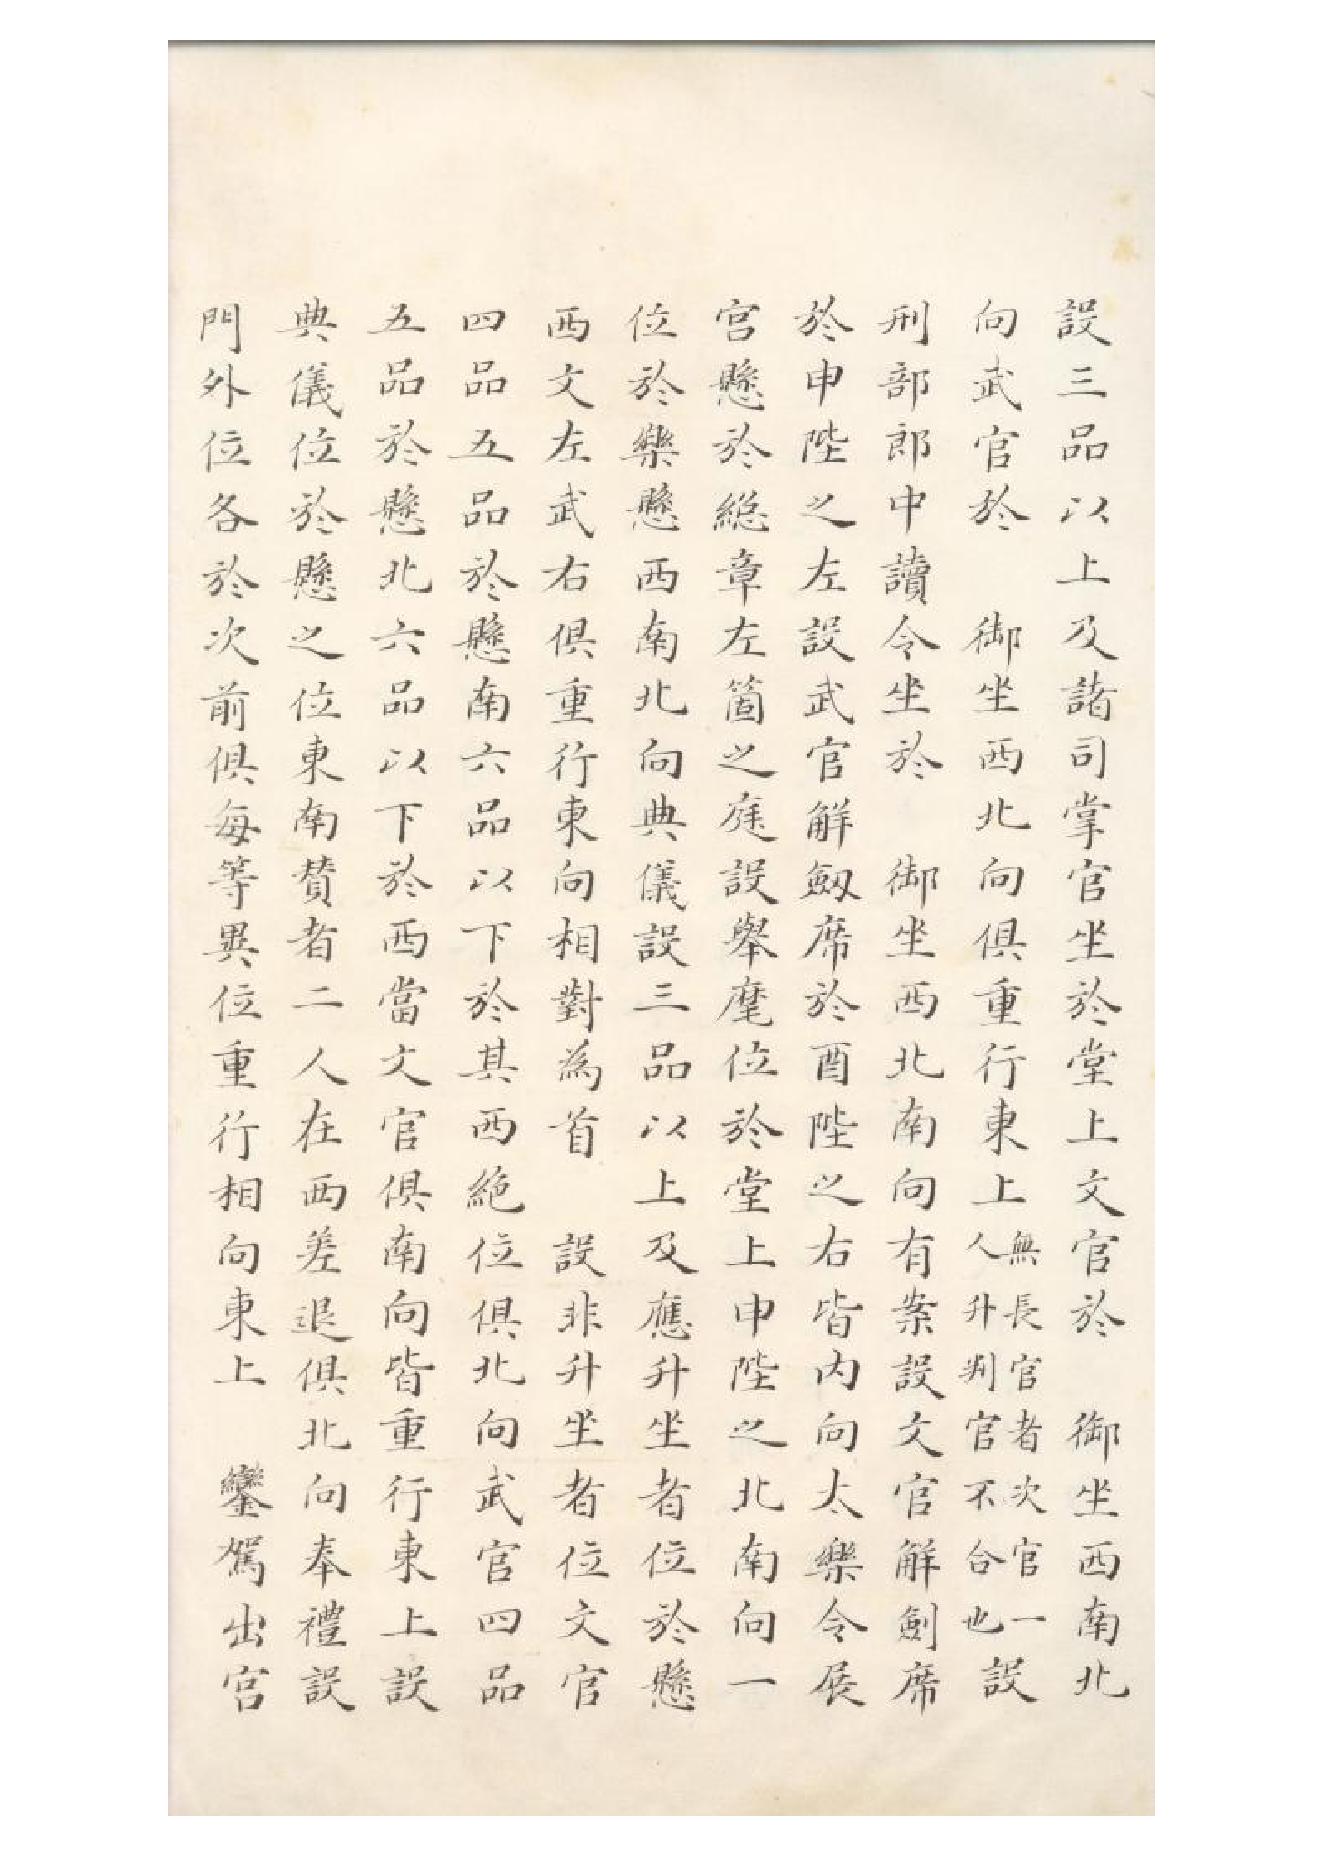 設三品以上及諸司掌官坐於堂上文官於　御坐西南北
向武官於　御坐西北向俱重行東上無長官者次官一人升判官不合也設
刑部郎中讀令坐於　御坐西北南向有案設文官解劍席
於申陛之左設武官解劔席於酉陛之右皆内向太樂令展
宫懸於緫章左箇之庭設舉麾位於堂上申陛之北南向一
位於樂懸西南北向典儀設三品以上及應升坐者位於懸
西文左武右俱重行東向相對為首　設非升坐者位文官
四品五品於懸南六品以下於其西絶位俱北向武官四品
五品於懸北六品以下於西當文官俱南向皆重行東上設
典儀位於懸之位東南賛者二人在西差退俱北向奉禮設
門外位各於次前俱每等異位重行相向東上　鑾駕出宫